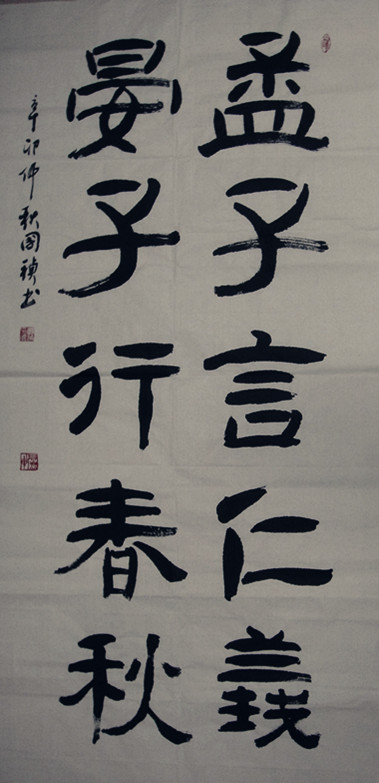 孟子言仁義
晏子行春秋
辛卯仲秋國禎书